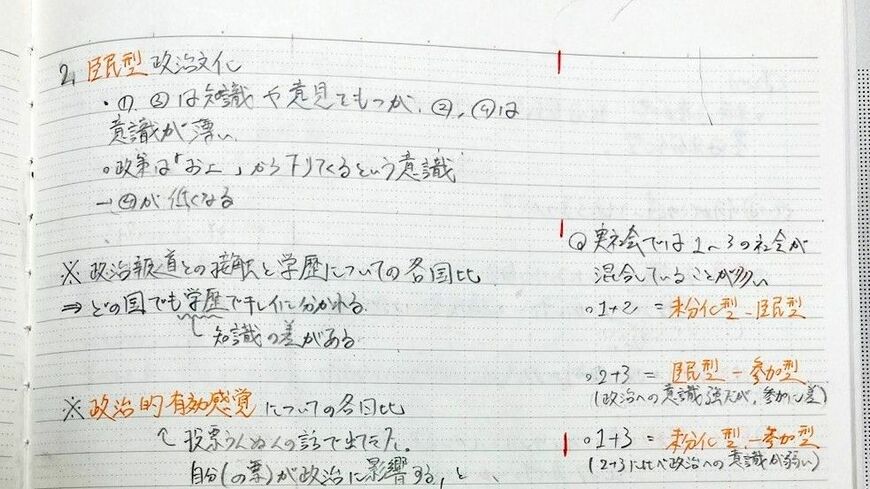 2. 臣民型 政治文化
・①, ③は知識や意見をもつが、②, ④は
意識が薄い
。政策は「お上」から下りてくるという意識
→④が低くなる
※ 政治報道との接触と学歴についての各国比
⇒ どの国でも学歴でキレイに分かれる
知識の差がある
※ 政治的有効感覚 についての各国比
投票うんぬんの話で出てきた。
自分(の票)が政治に影響する, と
◎ 実社会では 1~3の社会が
混合していることが多い
。1+2 = 未分化型-臣民型
。2+3 = 臣民型-参加型
(政治への意識強だが、参加に差)
。1+3 = 未分化型-参加型
(2+3に比べ政治への意識が弱い)